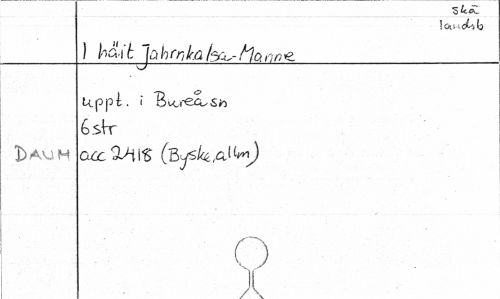 skä
landsb
I häit Jahrnkalsa-Manne
uppt. i Bureåsn
6str
DAUM acc 2418 (Byske, allm)